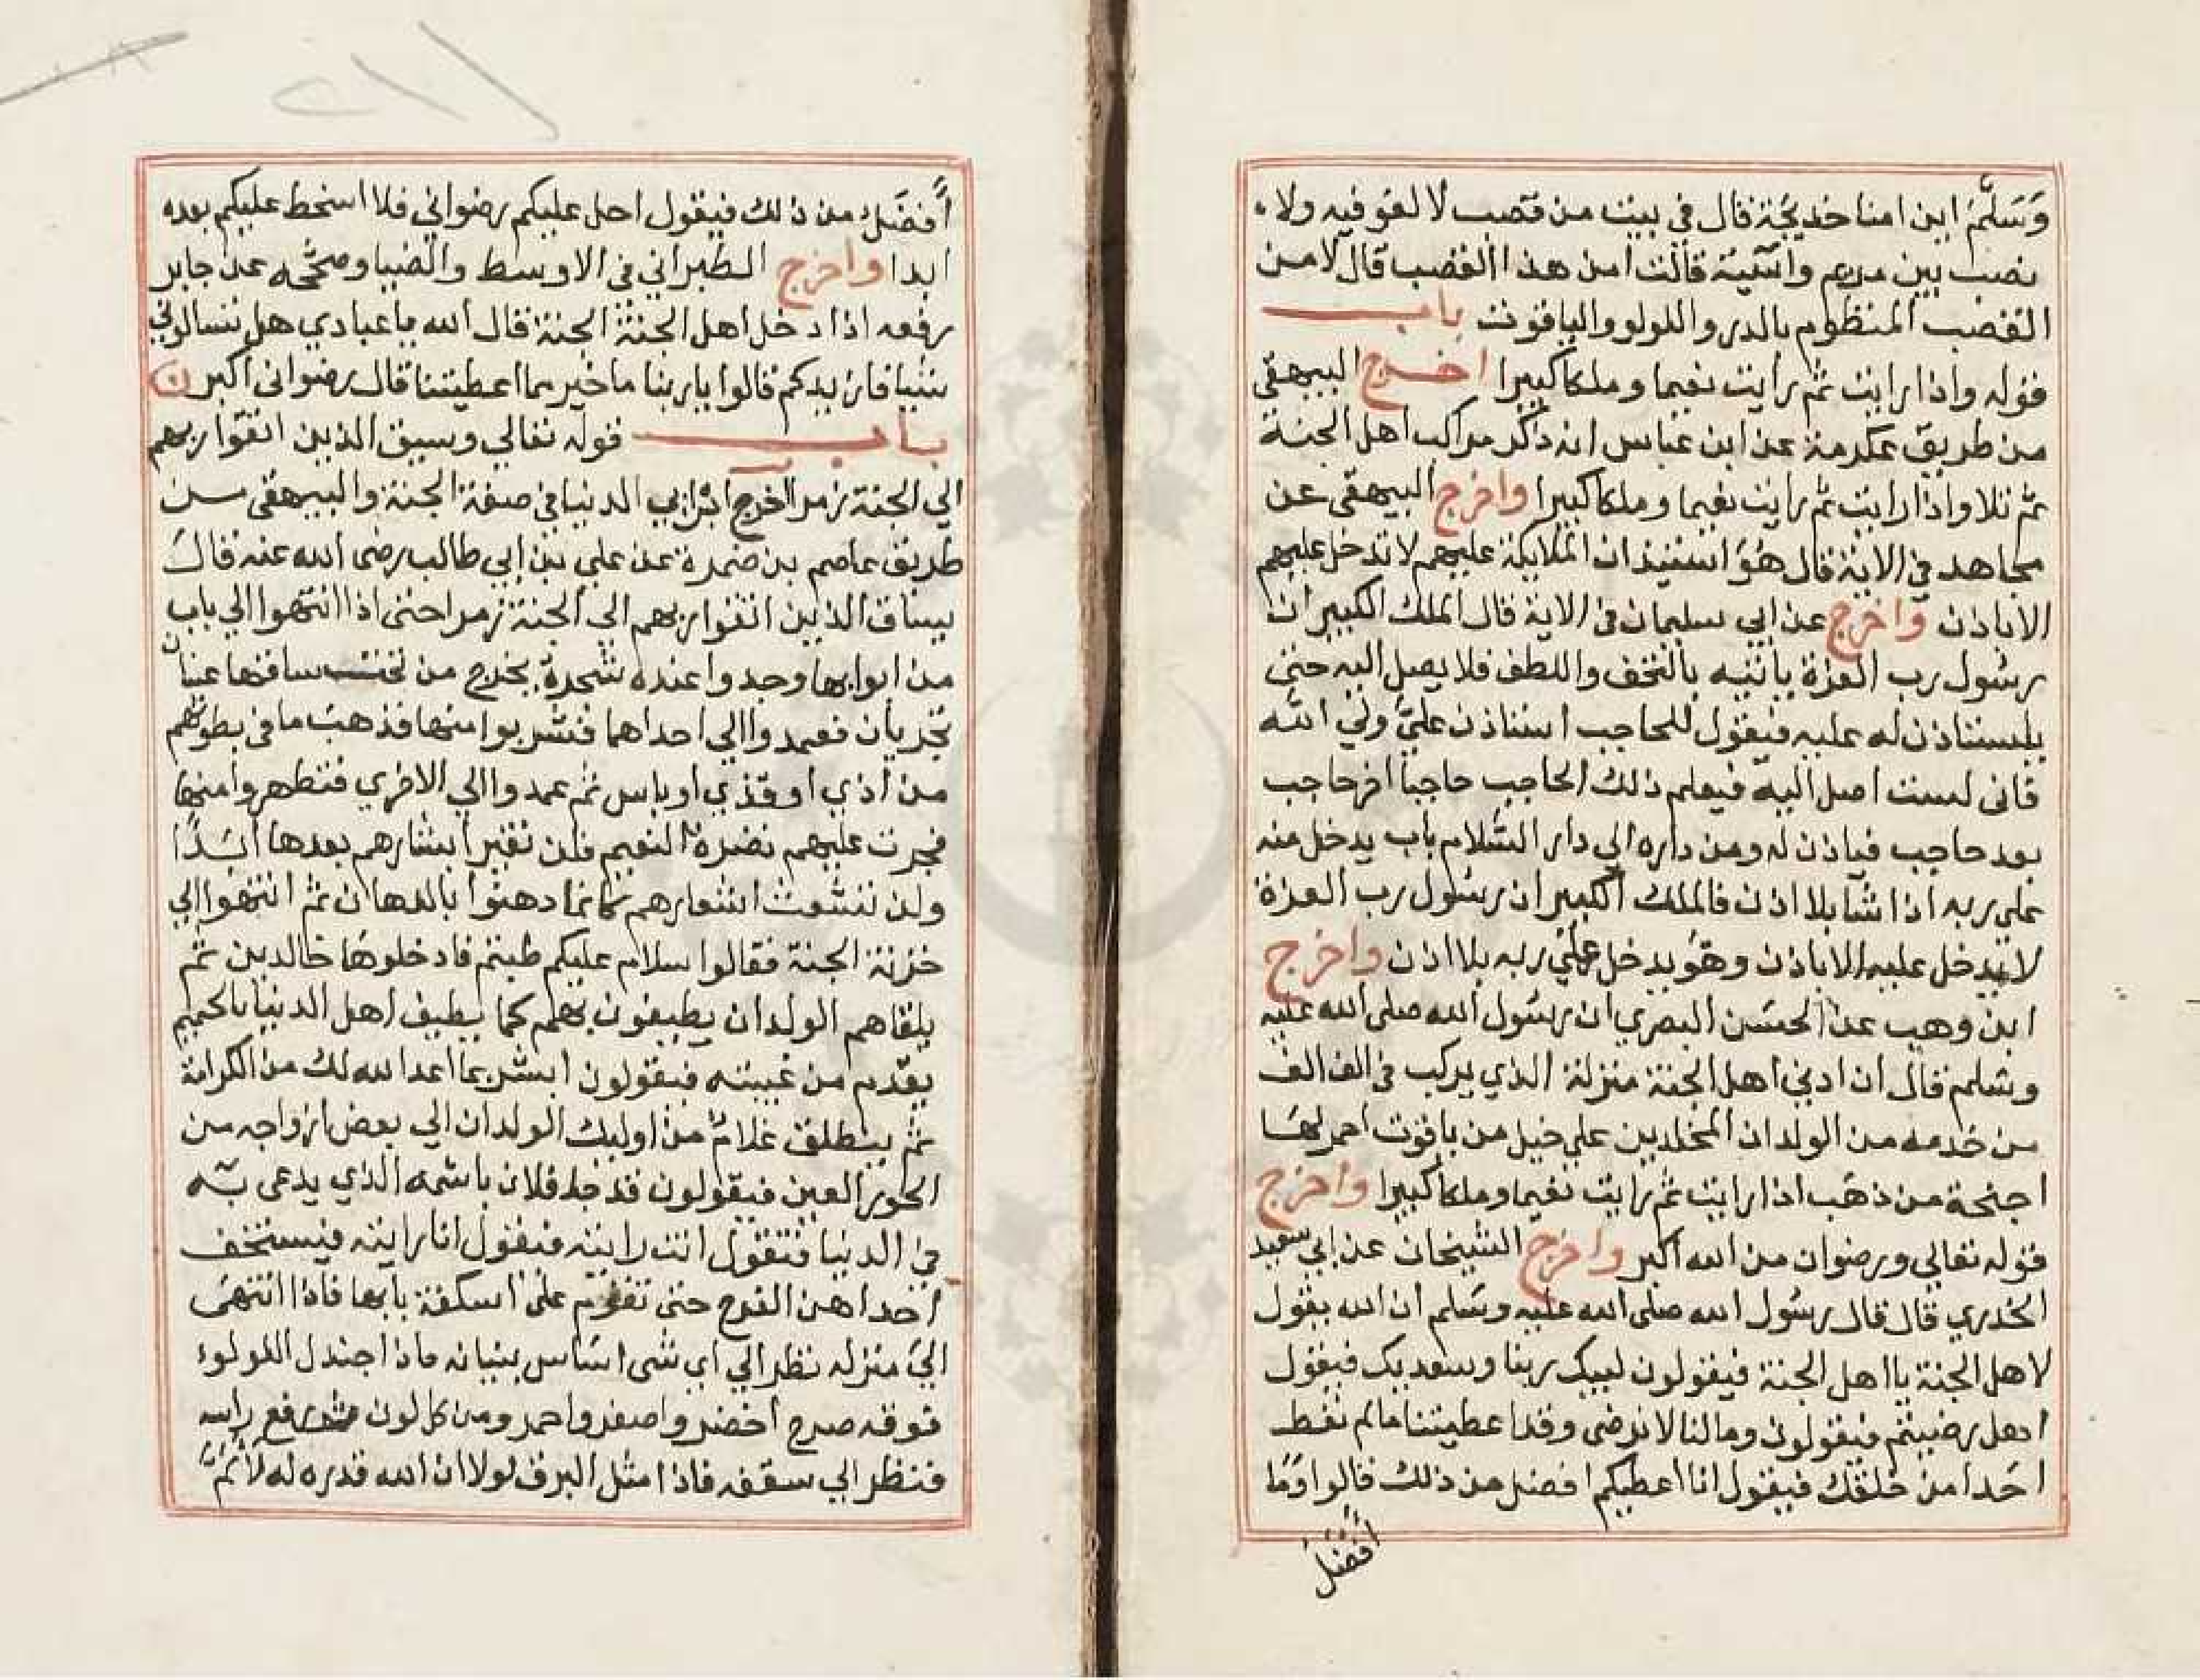 وَسَلَّمَ اين امنا خديجة قال في بيت من قصب لا لغو فيه ولا
نصب بين مريم واسية قالت امن هذا القصب قال لا من
القصب المنظوم بالدر واللولو والياقوت باب
قوله واذا رايت ثم رايت نعيما وملكا كبيرا اخرج البيهقي
من طريق عكرمة عن ابن عباس انه ذكر مراكب اهل الجنة
ثم تلا واذا رايت ثم رايت نعيما وملكا كبيرا واخرج البيهقي عن
مجاهد في الاية قال هو استيذان الملايكة عليهم لا تدخل عليهم
الا باذن واخرج عن ابي سليمان في الاية قال الملك الكبير ان
رسول رب العزة ياتيه بالتحف واللطف فلا يصل اليه حتى
يلستاذن له عليه فيقول للحاجب استاذن علي ولي الله
فاني لست اصل اليه فيعلم ذلك الحاجب حاجبا اخر حاجب
بعد حاجب فياذن له ومن داره الي دار السلام باب يدخل منه
علي ربه اذا شا بلا اذن فالملك الكبير ان رسول رب العزة
لا يدخل عليه الا باذن وهو يدخل علي ربه بلا اذن واخرج
ابن وهب عن الحسن البصري ان رسول الله صلى الله عليه
وسلم قال ان ادني اهل الجنة منزلة الذي يركب في الف الف
من خدمه من الولدان المخلدين علي خيل من ياقوت احمر لها
اجنحة من ذهب اذا رايت ثم رايت نعيما وملكا كبيرا واخرج
قوله تعالي ورضوان من الله اكبر واخرج الشيخان عن ابي سعيد
الخدري قال قال رسول الله صلى الله عليه وسلم ان الله يقول
لاهل الجنة يا اهل الجنة فيقولون لبيك ربنا وسعديك فيقول
اهل رضيتم فيقولون وما لنا لا نرضى وقد اعطيتنا ما لم تعط
احدا من خلقك فيقول انا اعطيكم افضل من ذلك قالوا وما
افضل
أفضل من ذلك فيقول احل عليكم رضواني فلا اسخط عليكم بعده
ابدا واخرج الطبراني في الاوسط والضيا وصححه عن جابر
رفعه اذا دخل اهل الجنة الجنة قال الله يا عبادي هل تسالوني
شيا فازيدكم قالوا يا ربنا ما خير مما اعطيتنا قال رضواني اكبر
باب قوله تعالي وسيق الذين اتقوا ربهم
الي الجنة زمرا اخرج ابن ابي الدنيا في صفة الجنة والبيهقي من
طريق عاصم بن ضمرة عن علي بن ابي طالب رضى الله عنه قال
يساق الذين اتقوا ربهم الي الجنة زمرا حتى اذا انتهوا الي باب
من ابوابها وجدوا عنده شجرة يخرج من تحت ساقها عينان
تجريان فعمدوا الي احداهما فشربوا منها فذهب ما في بطونهم
من اذي او قذي او باس ثم عمدوا الي الاخري فتطهروا منها
فجرت عليهم نضرة النعيم فلن تغير ابشارهم بعدها ابدا
ولن تشعث اشعارهم كانما دهنوا بالدهان ثم انتهوا الي
خزنة الجنة فقالوا سلام عليكم طبتم فادخلوها خالدين ثم
يلقاهم الولدان يطيفون بهم كما يطيف اهل الدنيا بالحميم
يقدم من غيبته فيقولون ابشر بما اعد الله لك من الكرامة
ثم ينطلق غلام من اوليك الولدان الي بعض ازواجه من
الحور العين فيقولون قد جا فلان باسمه الذي يدعى به
في الدنيا فتقول انت رايته فيقول انا رايته فيستخف
احداهن الفرح حتى تقوم على اسكفة بابها فاذا انتهى
الي منزله نظر الي اي شى اساس بنيانه فاذا جندل اللولوء
فوقه صرح اخضر واصفر واحمر ومن كل لون رفع راسه
فنظر الي سقفه فاذا مثل البرق لولا ان الله قدره له لالم